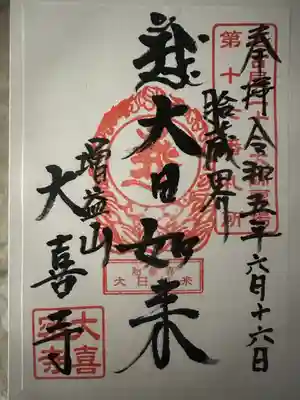 奉拝 令和五年六月十六日
第十
胎蔵界
大日如来
増益山
大喜寺
大喜